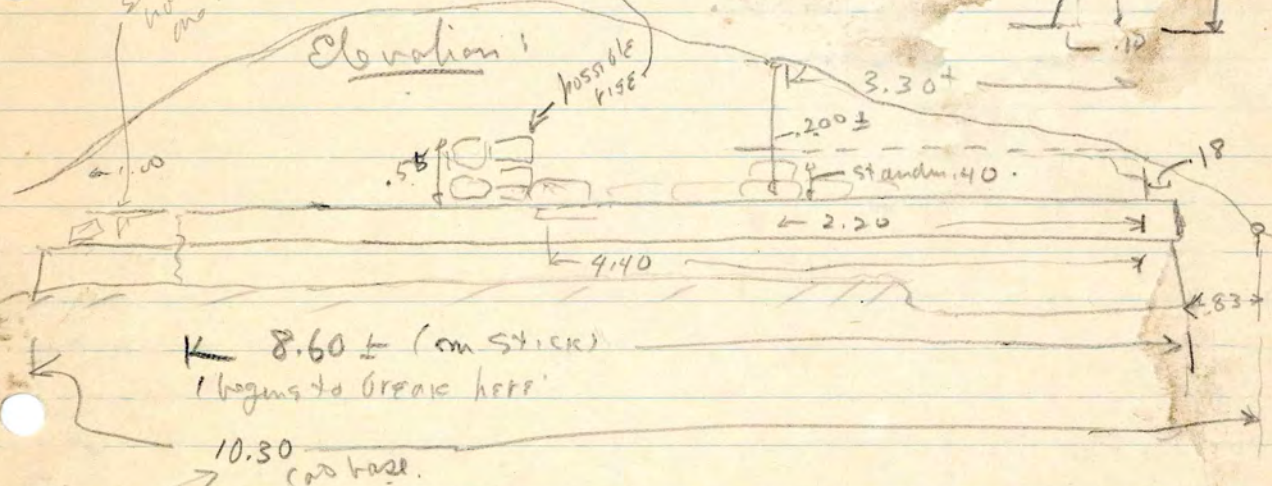 .10
Elevation:
possible
rise
3.30+
.200 ±
.18
.5
standin .40
2.20
4.40
.83
8.60 ± (on stick)
begins to break here
10.30
base.